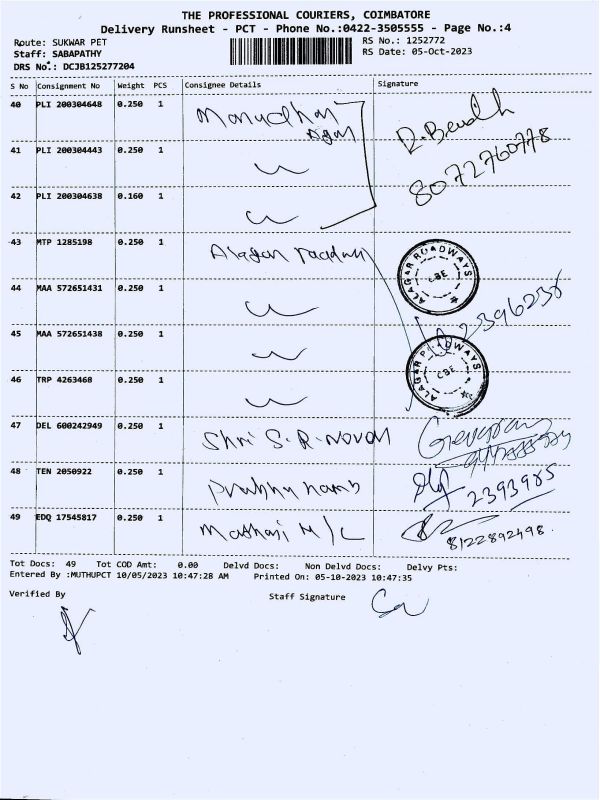 THE PROFESSIONAL COURIERS, COIMBATORE
Delivery Runsheet - PCT - Phone No.:0422-3505555 - Page No.:4
Route: SUKWAR PET
RS No.: 1252772
Staff: SABAPATHY
RS Date: 05-Oct-2023
DRS No.: DCJB125277204
S No Consignment No Weight PCS Consignee Details Signature
40 PLI 200304648 0.250 1
8072760778
41 PLI 200304443 0.250 1
42 PLI 200304638 0.160 1
43 MTP 1285198 0.250 1
ALAGAR ROADWAYS CBE
44 MAA 572651431 0.250 1
45 MAA 572651438 0.250 1
ALAGAR ROADWAYS CBE
46 TRP 4263468 0.250 1
47 DEL 600242949 0.250 1 Shri S.R.
48 TEN 2050922 0.250 1 Prabhu
2393985
49 EDQ 17545817 0.250 1
8122892498
Tot Docs: 49 Tot COD Amt: 0.00 Delvd Docs: Non Delvd Docs: Delvy Pts:
Entered By :MUTHUPCT 10/05/2023 10:47:28 AM Printed On: 05-10-2023 10:47:35
Verified By Staff Signature